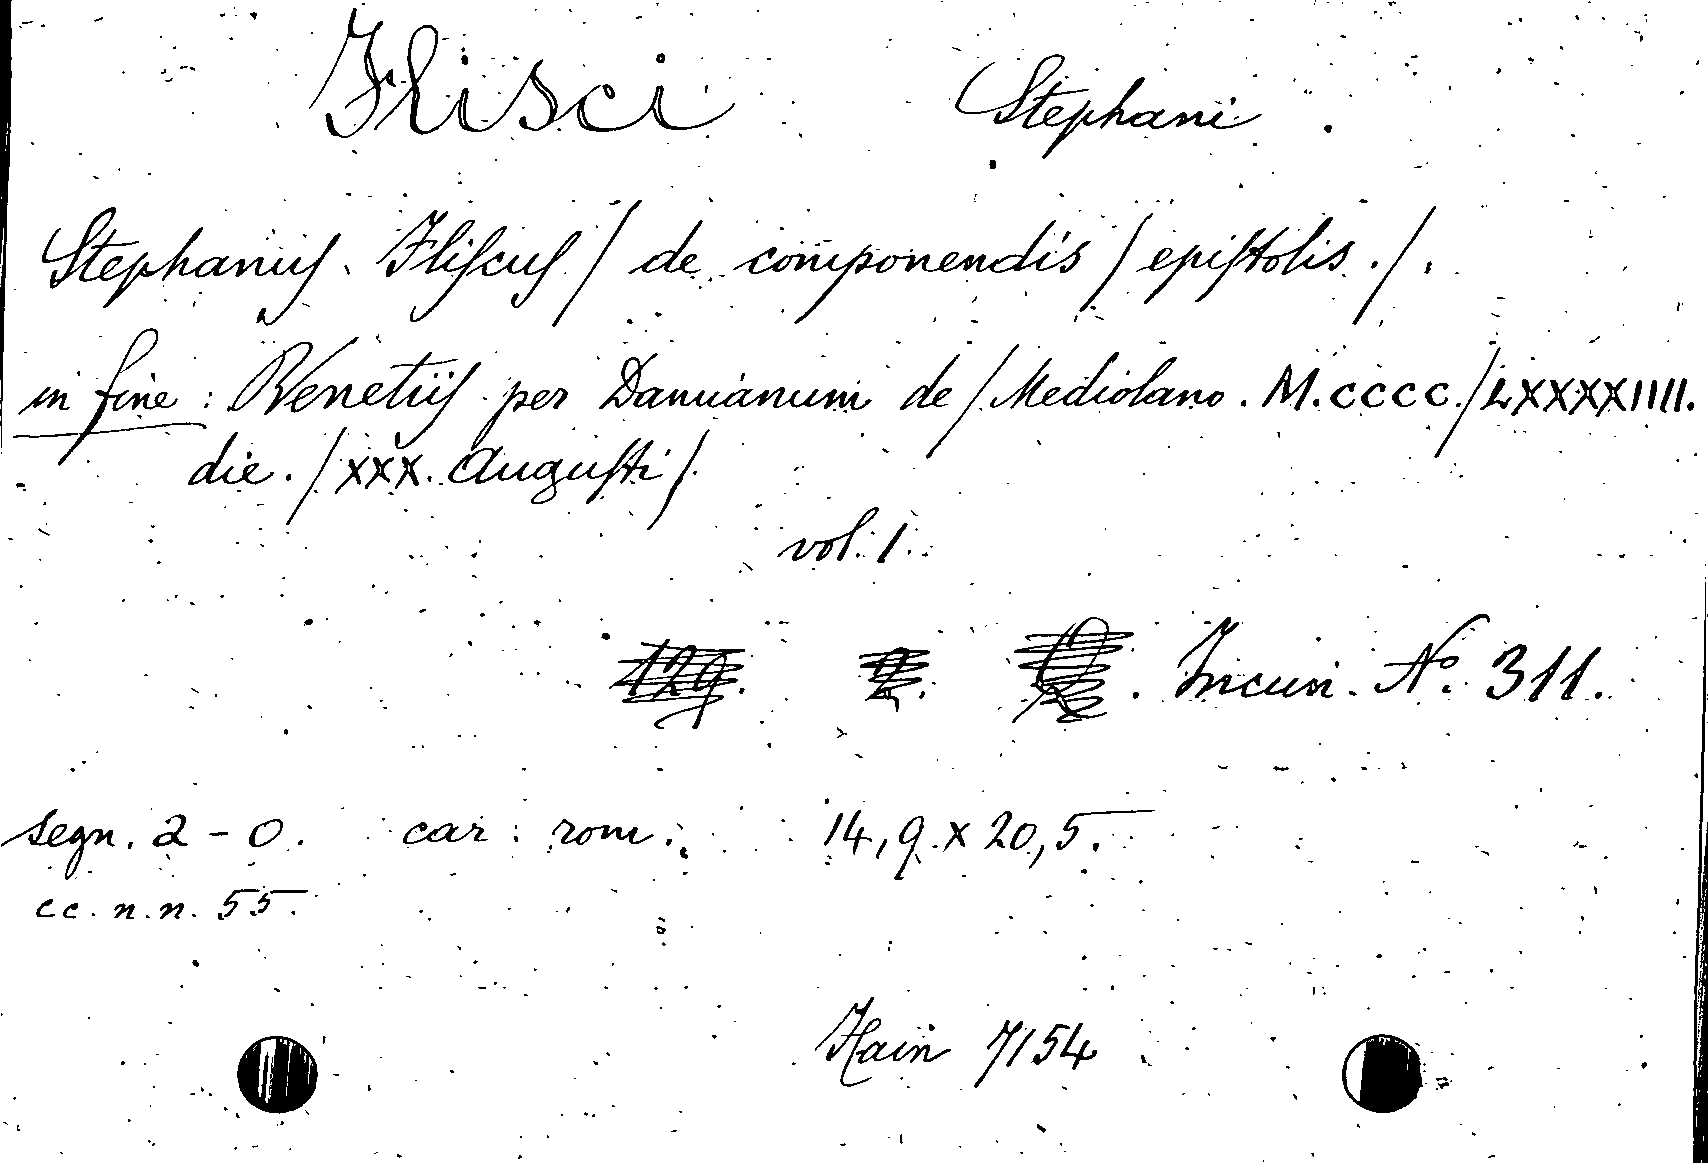 Flisci Stephani.
Stephanuſ. Fliſcuſ / de componendis / epiſtolis. /.
in fine: Venetiiſ per Damianum de / Mediolano. M.cccc. / LXXXXIIII.
die. / XXX. Auguſti /.
vol. 1.
129. 2. . Incun. No. 311.
segn. a - o. car. rom. 14,9 x 20,5.
cc. n.n. 55.
Hain 7154